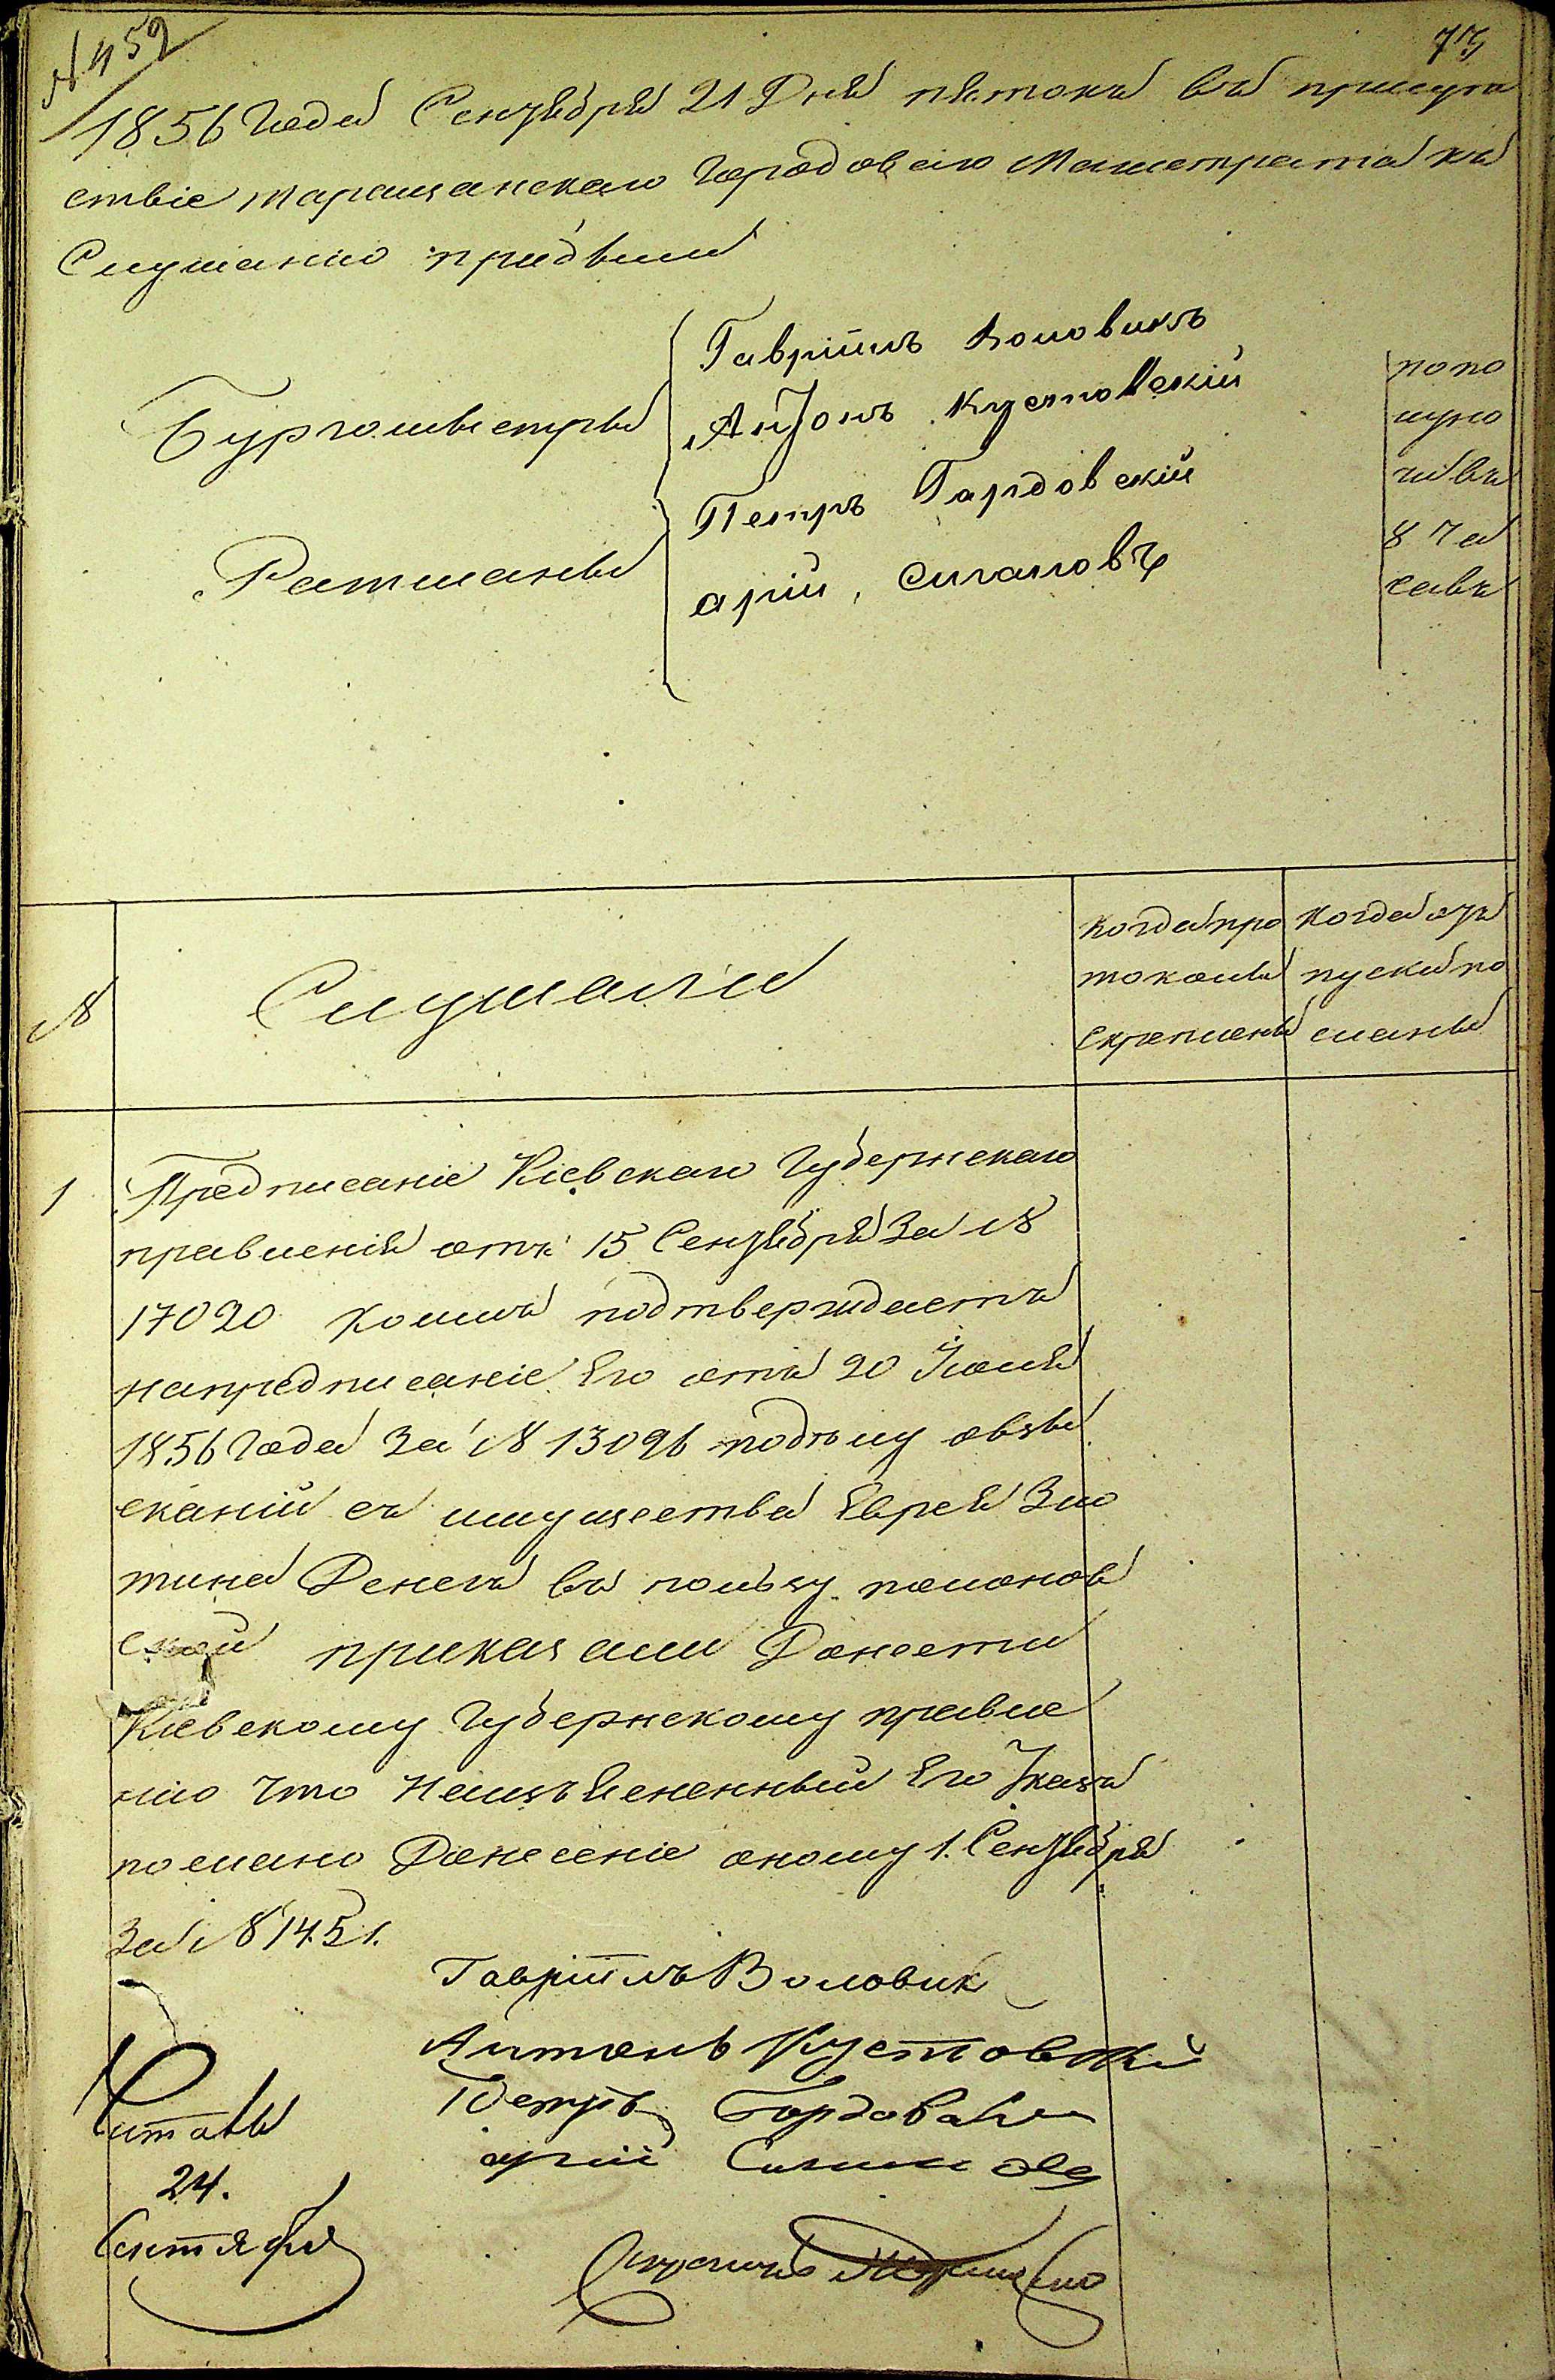 № 459
73
1856 года Сентября 21 Дня пятокъ въ присут
ствіе таращанскаго городоваго Магистрата къ
Слушанію прибыли
Бургомистры
Гавріилъ Воловикъ
Антонъ Кустовскій
Ратманы
Петръ Гордовскій
арій Слѣ
по по
луно
чи въ
8 ча
совъ
№
Слушали
Когда про
токолы
скреплены
Когда от
пуски по
сланы
1
Предписаніе Кіевскаго Губернскаго
правленія отъ 15 Сентября За №
17020 Коимъ подтверждаетъ
напредписаніе Его отъ 20 Іюля
1856 года За № 13096 подѣлу овзы
сканіи съ имущества Еврея Зло
тина Денегъ въ пользу полонов
ской приказали Донести
Кіевскому Губернскому правле
нію Что Наизъясненный Его Указъ
послано Донесеніе оному 1. Сентября
За № 1451.
Гавріилъ Воловик
Антонъ Кустовскій
Петръ Гордовскій
арій
Читалъ
24.
Сентября